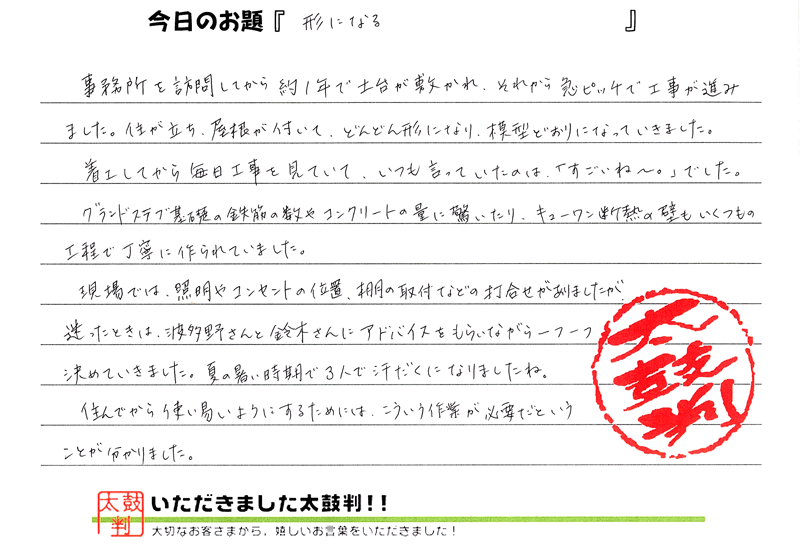 今日のお題『 形になる 』
事務所を訪問してから約1年で土台が敷かれ、それから急ピッチで工事が進み
ました。柱が立ち、屋根が付いて、どんどん形になり、模型どおりになっていきました。
着工してから毎日工事を見ていて、いつも言っていたのは、「すごいね〜。」でした。
グランドスラブ基礎の鉄筋の数やコンクリートの量に驚いたり、キューワン断熱の壁もいくつもの
工程で丁寧に作られていました。
現場では、照明やコンセントの位置、棚の取付などの打合せがありましたが、
迷ったときは、波多野さんと鈴木さんにアドバイスをもらいながら一つ一つ
決めていきました。夏の暑い時期で3人で汗だくになりましたね。
住んでから使い易いようにするためには、こういう作業が必要だという
ことが分かりました。
太鼓判
太鼓判
いただきました太鼓判!!
大切なお客さまから、嬉しいお言葉をいただきました!